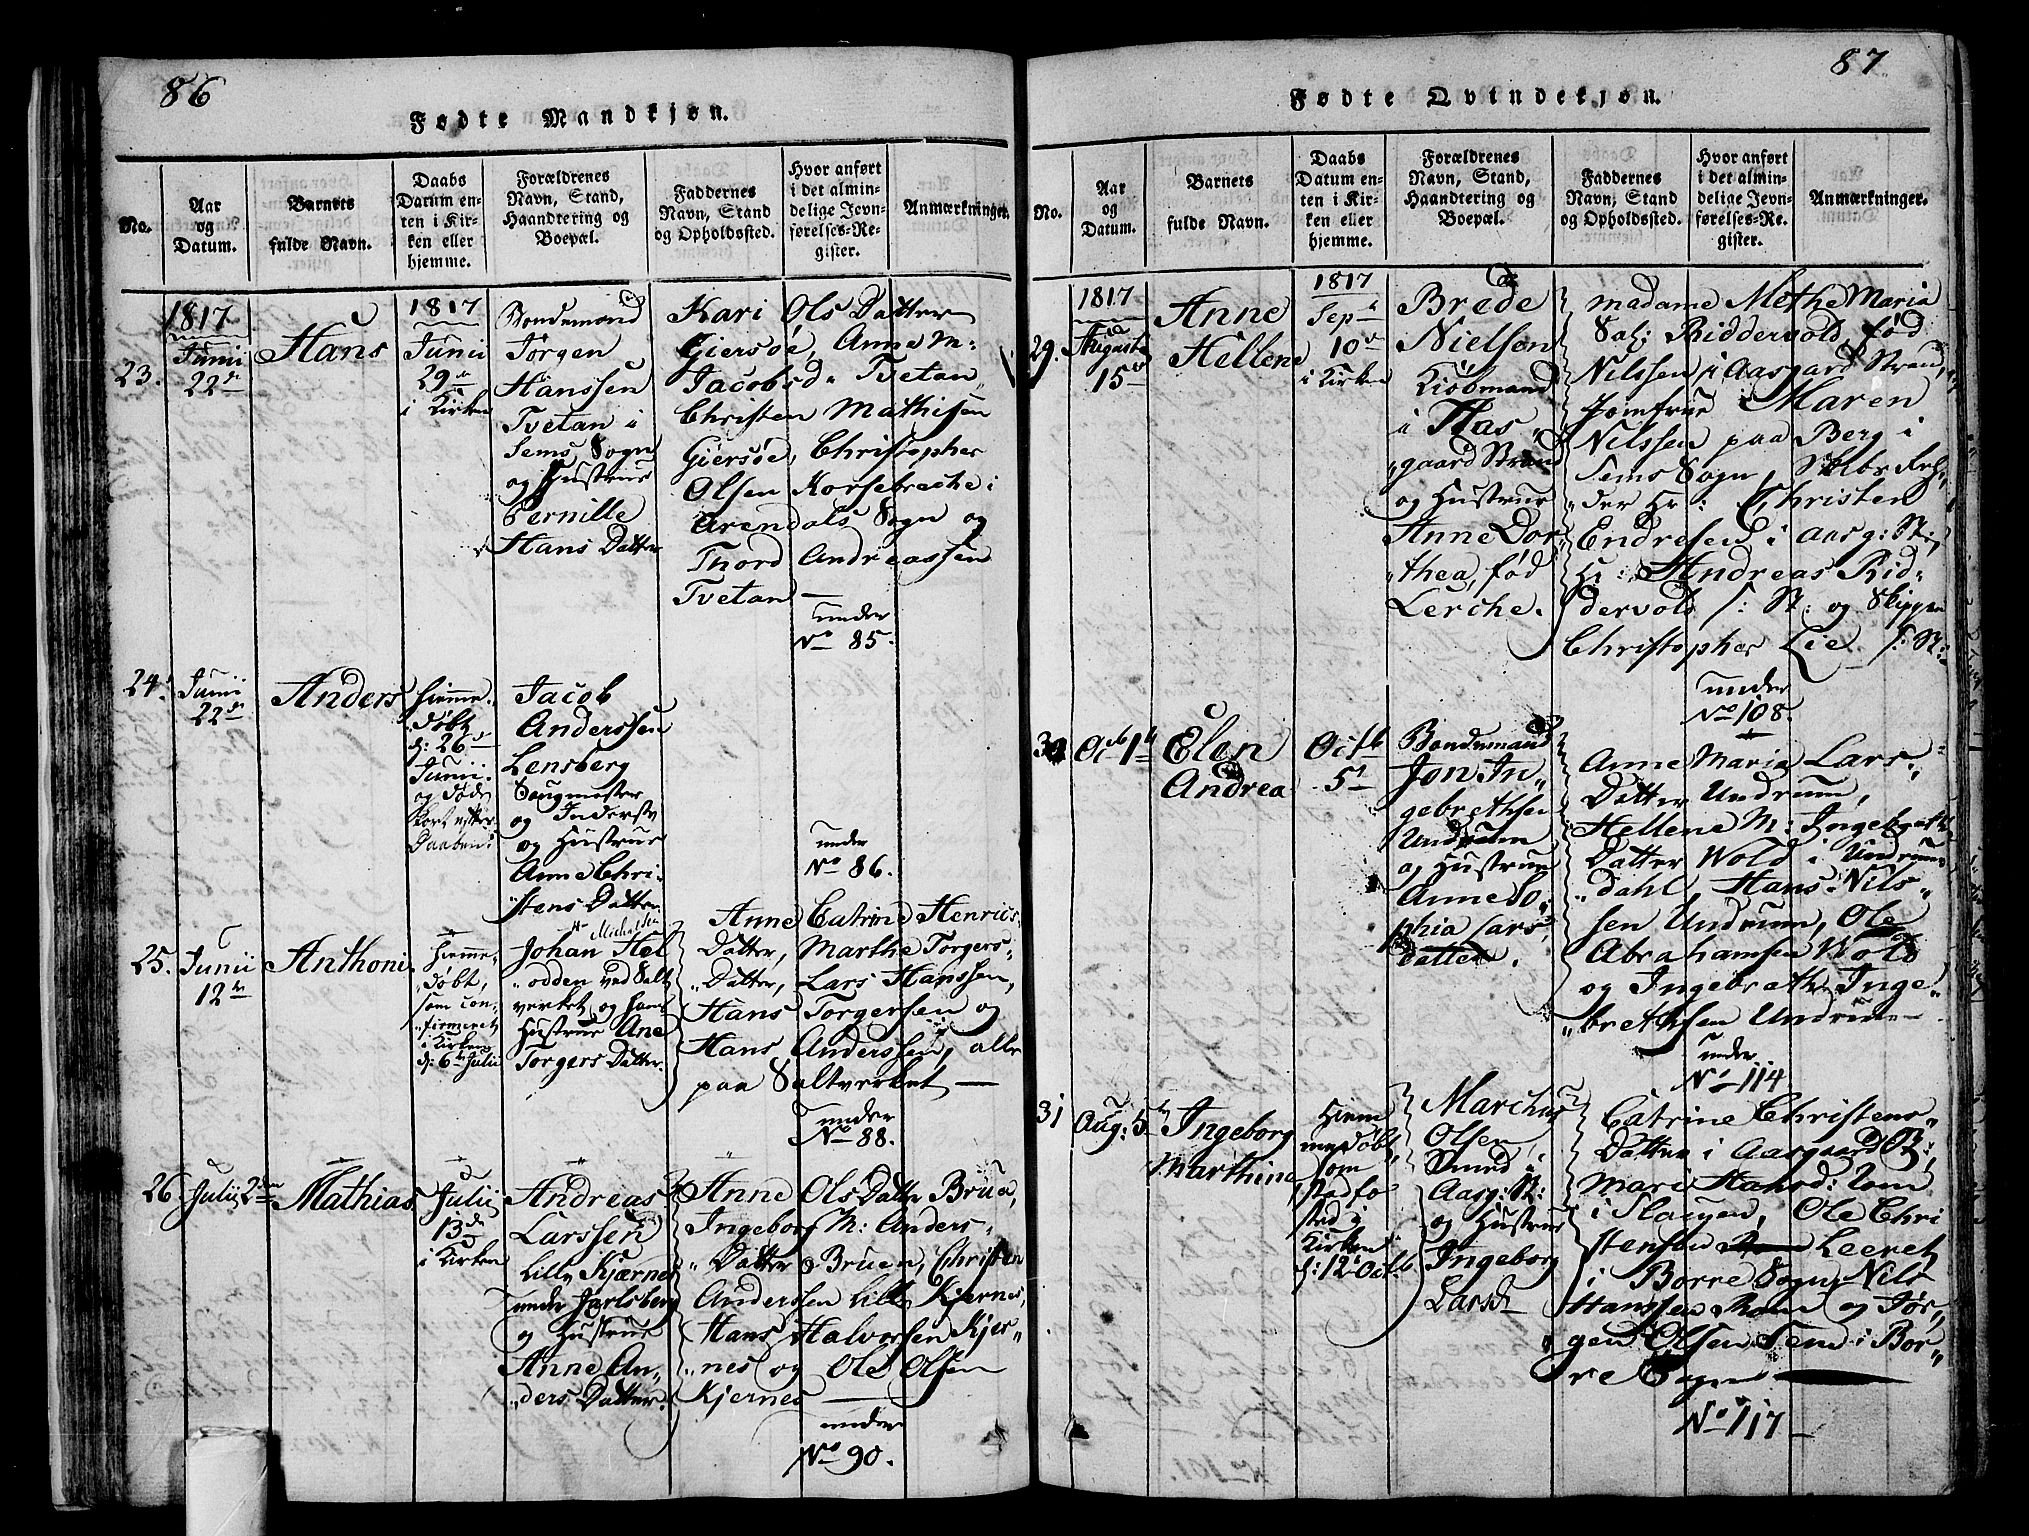 86
Fødte Mandkjøn.
No.
Aar og Datum.
Barnets fulde Navn.
Daabs Datum enten i Kirken eller hjemme.
Forældrenes Navn, Stand, Haandtering og Boepæl.
Faddernes Navn, Stand og Opholdssted.
Hvor anført i det almindelige Jevnførelses-Register.
Anmærkninger.
23.
1817
Junii
22de
Hans
1817
Junii
29de
i Kirken
Bondemand
Jørgen
Hanssen
Tvetan i
Sems Sogn
og Hustrue
Pernille
Hans Datter
Kari Ols Datter
Giersøe, Anne M:
Jacobsd. Tvetan
Christen Mathisen
Giersøe, Christopher
Olsen Korsebreche i
Arendals Sogn og
Thord Andreassen
Tvetan —
under
No 85.
24.
Junii
22de
Anders
hiemme
døbt
d: 26de
Junii
og døde
kort efter
Daaben
Jacob
Anderssen
Lensberg
Saugmester
og Inderste
og Hustrue
Anne Chri-
stens Datter
under
No 86.
25.
Junii
12te
Anthoni
hiemme-
døbt,
som con-
firmeret
i Kirken
d: 6te Julii
Michelsen
Johan Hel
odden ved Salt
verket og
Hustrue Ane
Torgers Datter.
Anne Catrine Henrics
Datter, Marthe Torgers
Datter, Lars Hanssen,
Hans Torgersen og
Hans Anderssen, alle
paa Saltverket —
under
No 88.
26.
Julii 2den
Mathias
Julii
13de
i Kirken
Andreas
Larssen
Lille Kjærnes
under Jarlsberg
og Hustrue
Anne An-
ders Datter.
Anne Ols Datter Brua,
Ingeborg M: Anders-
Datter Bruen, Christen
Anderssen Lille Kjernes,
Hans Halvorsen Kjer-
nes og Ole Olsen
Kjernes
under
No 90.
87
Fødte Qvindekjøn.
No.
Aar og Datum.
Barnets fulde Navn.
Daabs Datum enten i Kirken eller hjemme.
Forældrenes Navn, Stand, Haandtering og Boepæl.
Faddernes Navn, Stand og Opholdssted.
Hvor anført i det almindelige Jevnførelses-Register.
Anmærkninger.
29.
1817
Augusti
15de
Anne
Hellene
1817
Sep
10de
i Kirken
Brede
Nielsen
Kiøbmand
i Aas-
gaard Strand
og Hustrue
Anne Dor-
thea, fød
Lerche.
Madame Methe Maria
Sal: Riddervold, fød
Nilssen i Aasgaard Strand,
Jomfrue Maren
Nilssen paa Berg i
Sems Sogn,
Hr: Christen
Endresen i Aasg: St:,
Hr: Andreas Rid-
dervold i St: og Skipper
Christopher Lie i St:
under
No 108.
30
Octb 1te
Elen
Andrea
Octb
5te
Bondemand
Jon In-
gebrethsen
Undrum
og Hustrue
Anne So-
phia Lars
datter.
Anne Maria Lars-
Datter Undrum,
Hellene M: Ingebreths
Datter Wold i Undrums
dahl, Hans Nils-
sen Undrum, Ole
Abrahamsen Wold
og Ingebreth Inge-
brethsen Undrum —
under
No 114
31
Aug: 5te
Ingeborg
Marthine
Hiem-
me døbt,
som
stadfæ
sted i
Kirken
d: 12te Octb
Marchus
Olsen
Smed i
Aasg: St:
og Hustrue
Ingeborg
Larsd
Catrine Christens
Datter i Aasgaard B:,
Mari Hansd: Rom
i Slagen, Ole Chri
stensøn Leeret
i Borre Sogn, Nils
Hanssen Rom og Jør-
gen Olsen Sem i Bor-
re Sogn
No 117